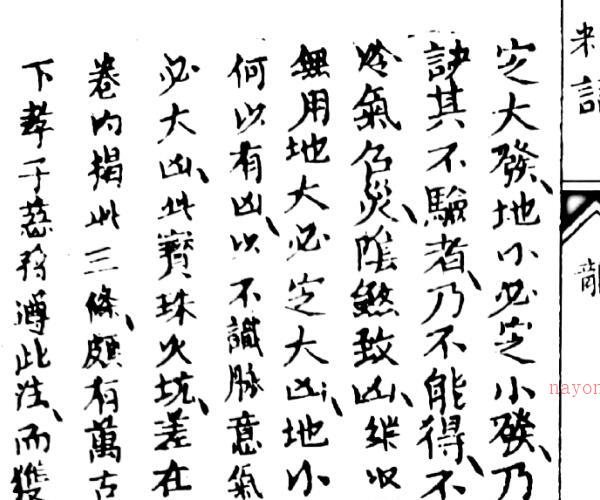 朱語
龍
定大發、地小必定小發、乃
訣其不驗者、乃不能得、不
冷氣召災、陰煞致凶、雖收
無用地大必定大凶、地小
何以有凶、以不識脉意氣
必大凶、此寶珠火坑、差在
卷内揭此三條、頗有萬古
下孝子慈孫、遵此法、而獲
nayon